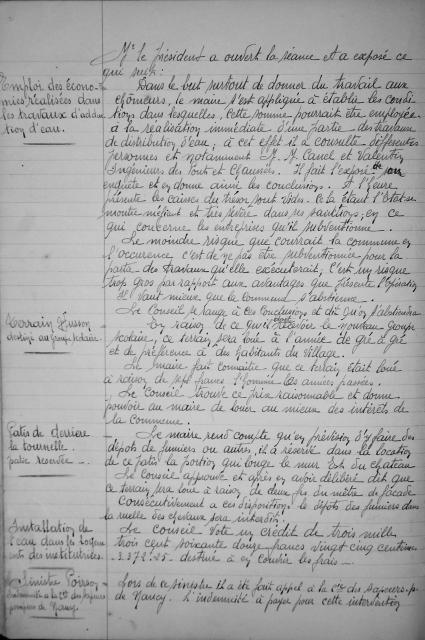 Mr le président a ouvert la séance et a exposé ce
qui suit :
Emploi des écono-
mies réalisées dans
les travaux d'adduc-
tion d'eau.
Dans le but surtout de donner du travail aux
chômeurs, le maire s'est appliqué à établir les condi
tions dans lesquelles, cette somme pourrait être employée
à la réalisation immédiate d'une partie des travaux
de distribution d'eau ; à cet effet il a consulté différentes
personnes et notamment M. M. Canel et Valentin
Ingénieurs des Ponts et Chaussées. Il fait l'exposé de son
enquête et en donne ainsi les conclusions. A l'heure
présente les caisses du trésor sont vides. Ce la étant l'Etat se
montre méfiant et très sévère dans ses sanctions, en ce
qui concerne les entreprises qu'il subventionne.
Le moindre risque que courrait la commune en
l'occurence c'est de ne pas être subventionnée pour la
partie des travaux qu'elle exécuterait, c'est un risque
trop gros par rapport aux avantages que présente l'opération
Il vaut mieux que la commune s'abstienne.
Le Conseil se range à ces conclusions et dit qu'on s'abstiendra
Terrain Husson
destiné au groupe scolaire
En raison de ce qu'il doit recevoir le nouveau groupe
scolaire, ce terrain sera loué à l'année de gré à gré
et de préférence à du habitants du village.
Le maire fait connaître que ce terrain était loué
à raison de sept francs l'homée les années passées.
Le Conseil trouve ce prix raisonnable et donne
pouvoir au maire de louer au mieux des intérêts de
la Commune.
Patis de derrière
la tournelle
partie réservée
Le maire rend compte qu'en prévision d'y faire des
dépôts de fumiers ou autres, il a réservé dans la location
de ce patis la portion qui longe le mur Est du château
Le Conseil approuve et après en avoir délibéré dit que
ce terrain sera loué à raison de deux frs du mètre de façade
Consécutivement à ces dispositions le dépôt des fumiers dans
la ruelle des chevaux sera interdit.
Installation de
l'eau dans les logem
ents des institutrices.
Le Conseil vote un crédit de trois mille
trois cent soixante douze francs vingt cinq centimes
3.372.25 destiné à en couvrir les frais
Sinistre Poirson
indemnité à la Cie des sapeurs
pompiers de Nancy.
Lors de ce sinistre il a été fait appel à la Cie des sapeurs-p.
de Nancy. L'indemnité à payer pour cette intervention